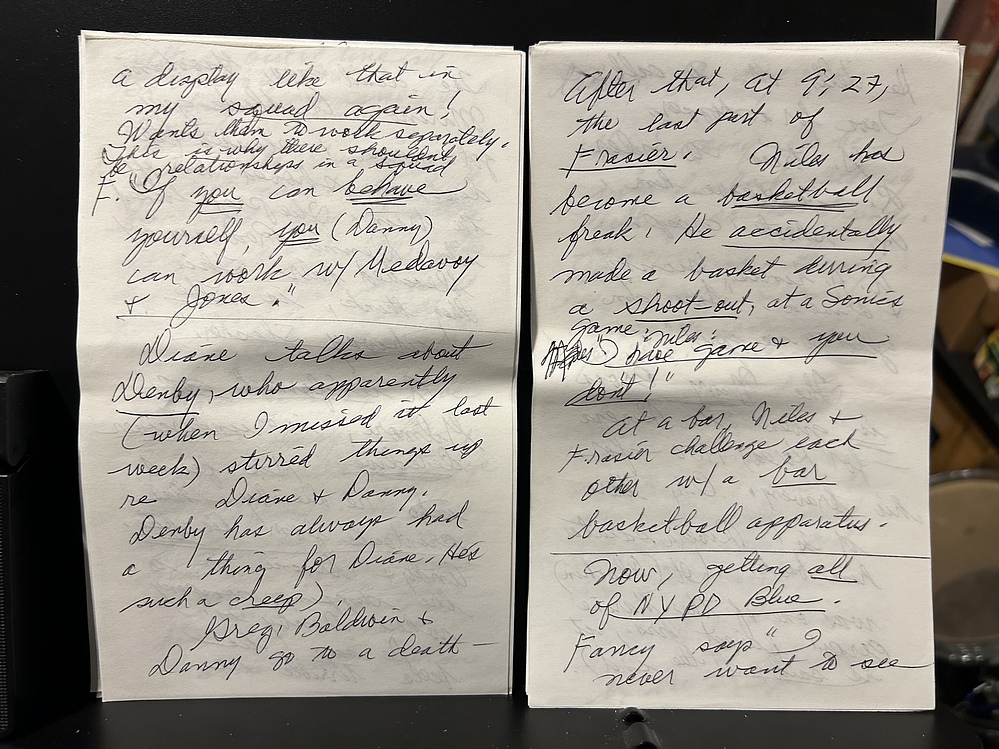 a display like that in
my squad again!
Wants them to work separately.
This is why there shouldn't
be relationships in a squad
F. "If you can behave
yourself, you (Danny)
can work w/ Medavoy
& Jones."
Diane talks about
Denby, who apparently
(when I missed it last
week) stirred things up
re Diane & Danny.
Denby has always had
a thing for Diane. He's
such a creep).
Greg, Baldwin &
Danny go to a death-
After that, at 9:27,
the last part of
Frasier. Niles has
become a basketball
freak! He accidentally
made a basket durring
a shoot-out, at a Sonics
game. Niles:
"I have game & you
don't!"
At a bar, Niles &
Frasier challenge each
other w/ a bar
basketball apparatus.
Now, getting all
of NYPD Blue.
Fancy says "I
never want to see